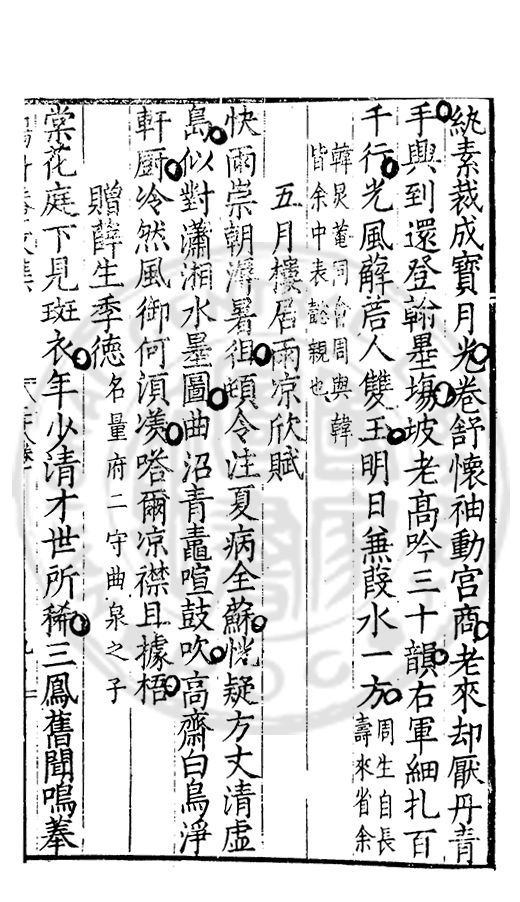 紈素裁成寶月光卷舒懷袖動宮商老來却厭丹青
手興到還登翰墨塲坡老高吟三十韻右軍細扎百
千行光風薜荔人雙玉明日蒹葭水一方周生自長
壽來省余
韓炅菴同會周與韓
皆余中表懿親也
五月樓居雨凉欣賦
快雨崇朝溽暑徂頓令注夏病全蘇恍疑方丈清虚
島似對瀟湘水墨圖曲沼青鼃喧鼓吹高齋白鳥淨
軒厨泠然風御何須羡嗒爾凉襟且據梧
贈薛生季德名量府二守曲泉之子
棠花庭下見斑衣年少清才世所稀三鳳舊聞鳴